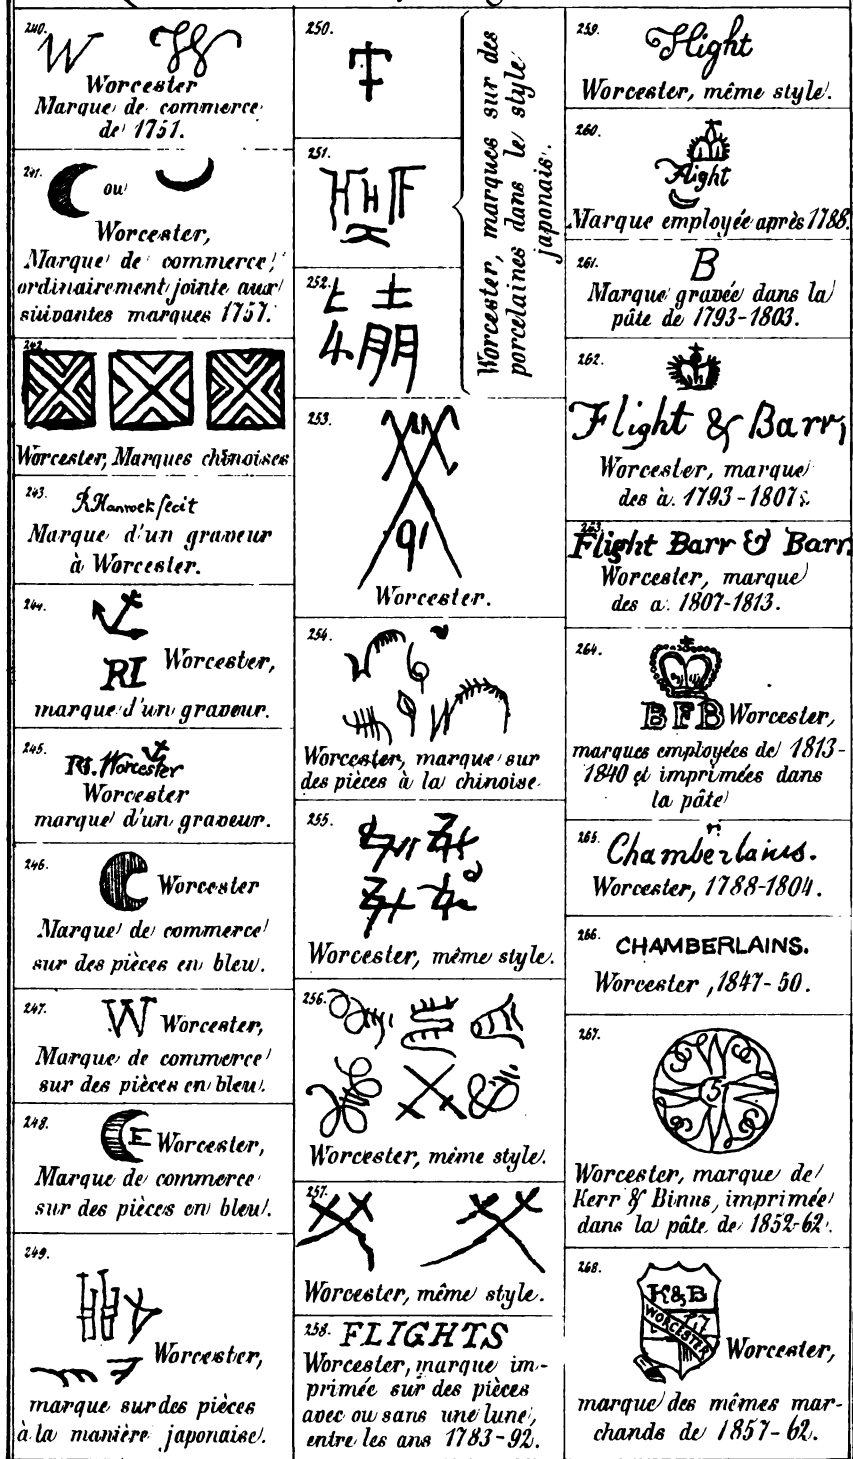 240.
W W
Worcester
Marque de commerce
de 1751.
241.
ou
Worcester,
Marque de commerce,
ordinairement jointe aux
suivantes marques 1757.
242.
Worcester, Marques chinoises
243.
R Hancock fecit
Marque d'un graveur
à Worcester.
244.
RI Worcester,
marque d'un graveur.
245.
RI. Worcester
Worcester
marque d'un graveur.
246.
Worcester
Marque de commerce
sur des pièces en bleu.
247.
W Worcester,
Marque de commerce
sur des pièces en bleu.
248.
E Worcester,
Marque de commerce
sur des pièces en bleu.
249.
Worcester,
marque sur des pièces
à la manière japonaise.
250.
251.
252.
Worcester, marques sur des
porcelaines dans le style
japonais.
253.
91
Worcester.
254.
Worcester, marque sur
des pièces à la chinoise
255.
Worcester, même style.
256.
Worcester, même style.
257.
Worcester, même style.
258. FLIGHTS
Worcester, marque im-
primée sur des pièces
avec ou sans une lune,
entre les ans 1783-92.
259.
Flight
Worcester, même style.
260.
Flight
Marque employée après 1788.
261.
B
Marque gravée dans la
pâte de 1793-1803.
262.
Flight & Barr,
Worcester, marque
des à. 1793-1807.
263.
Flight Barr & Barr.
Worcester, marque
des a. 1807-1813.
264.
BFB Worcester,
marques employées de 1813-
1840 et imprimées dans
la pâte
265.
Chamberlains.
Worcester, 1788-1804.
266.
CHAMBERLAINS.
Worcester, 1847-50.
267.
5
Worcester, marque de
Kerr & Binns, imprimée
dans la pâte de 1852-62.
268.
K&B
WORCESTER
Worcester,
marque des mêmes mar-
chands de 1857-62.